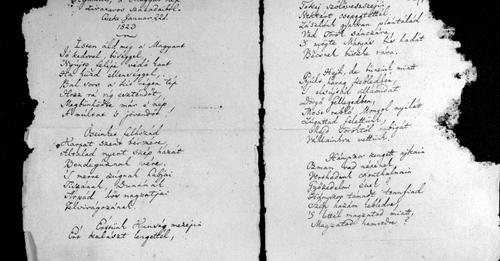 a' Magyar nép
zivataros századaiból.
Cseke, Januar. 22d.
1823.
Isten áldd meg a' Magyart
Jó kedvvel, bőséggel,
Nyújts feléje védő kart
Ha küzd ellenséggel;
Bal sors a' kit régen tép
Hozz rá víg esztendőt,
Megbűnhődte már e' nép
A' multat 's jövendőt.
Őseinket felhozád
Kárpát' szent bérczére,
Általad nyert szép hazát
Bendegúznak vére.
'S merre zúgnak habjai
Tiszának, Dunának,
Árpád' hős magzatjai
Felvirágozának.
Értünk Kunság' mezejin
Ért kalászt lengettél,
Tokaj' szőlővesszein
Nektárt csepegtettél.
Zászlónk gyakran plántálád
Vad Török' sánczára,
'S nyögte Mátyás' bús hadát
Bécsnek büszke vára.
Hajh, de bűneink miatt
Gyúlt harag kebledben,
'S elsújtád villámidat
Dörgő fellegedben,
Most rabló Mongol' nyilát
Zúgattad felettünk,
Majd Töröktől rabigát
Vállainkra vettünk.
Hányszor zengett ajkain
Ozman' vad népének
Vert hadunk' csonthalmain
Győzedelmi ének!
Hányszor támadt tennfiad
Szép hazám kebledre,
'S lettél magzatod miatt,
Magzatod' hamvedre?